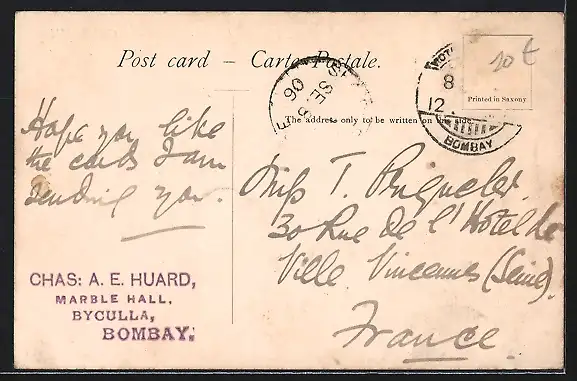 Post card — Carte Postale.
10 £
Printed in Saxony
8
12
BOMBAY
06
SE 8
The address only to be written on this side.
Hope you like
the cards I am
sending you.
Miss T.
30 Rue de l'Hotel de
Ville Vincennes (Seine).
France.
CHAS: A. E. HUARD,
MARBLE HALL,
BYCULLA,
BOMBAY.